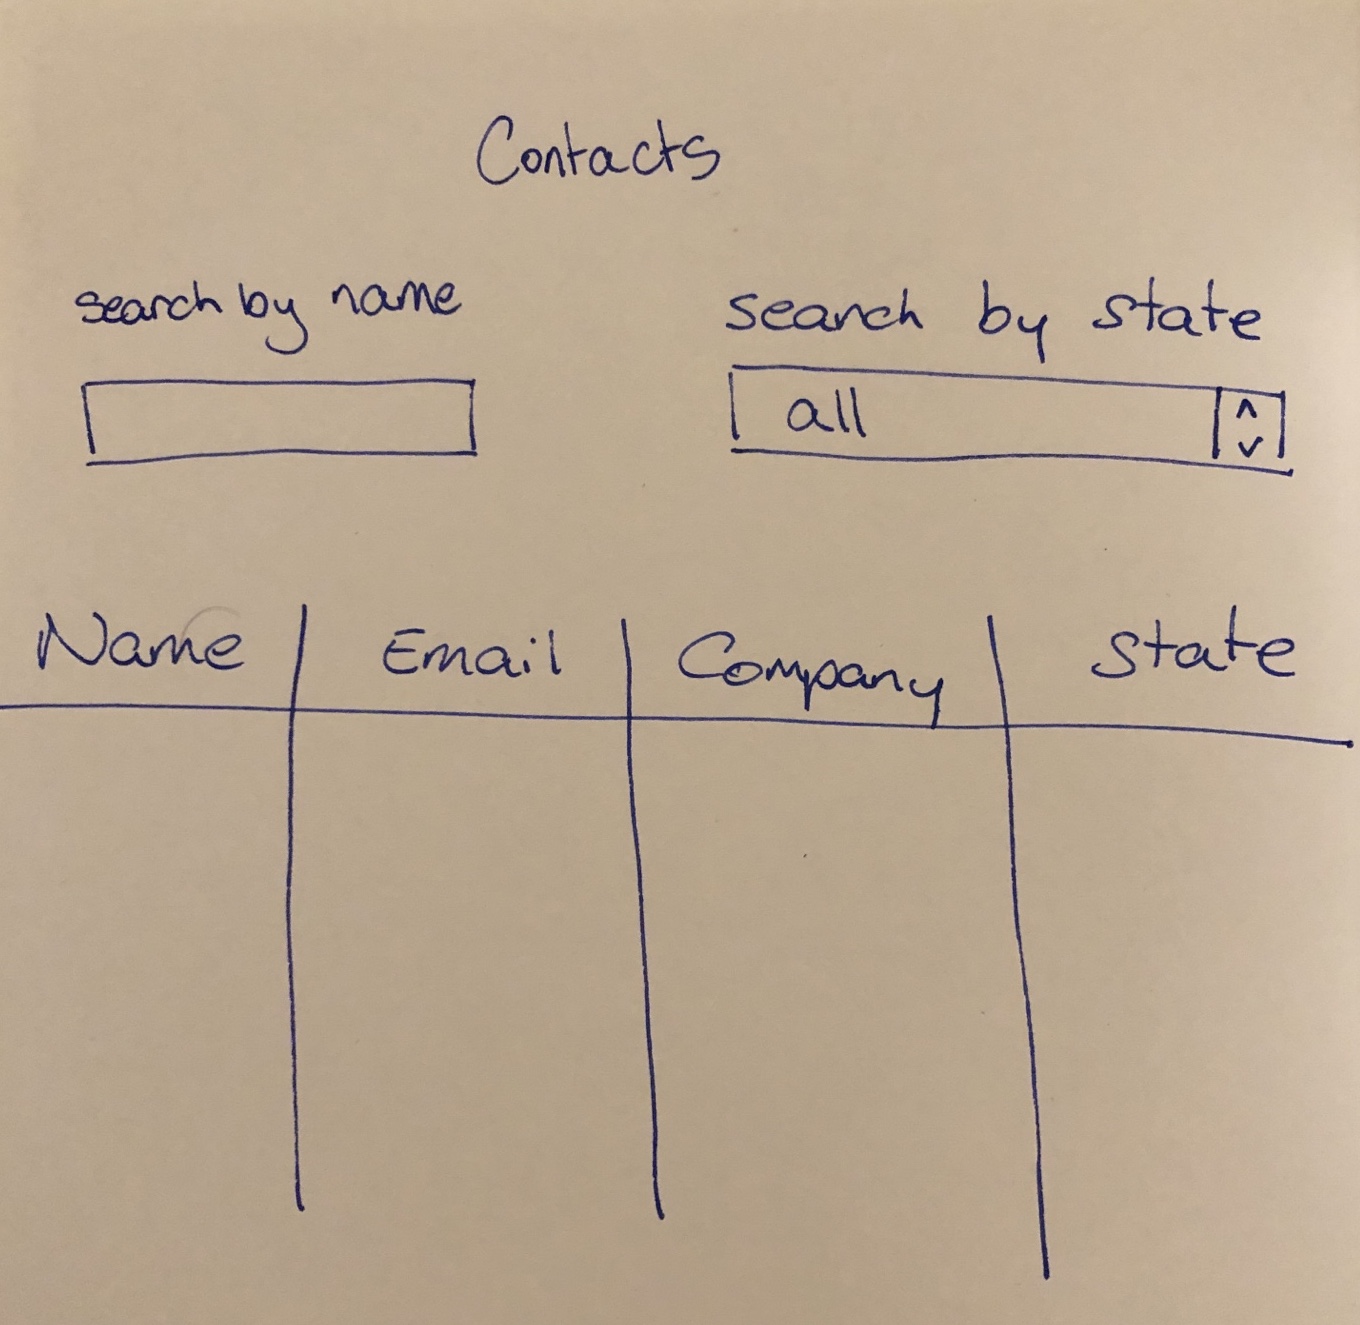 Contacts
search by name
search by state
all
Name Email Company State